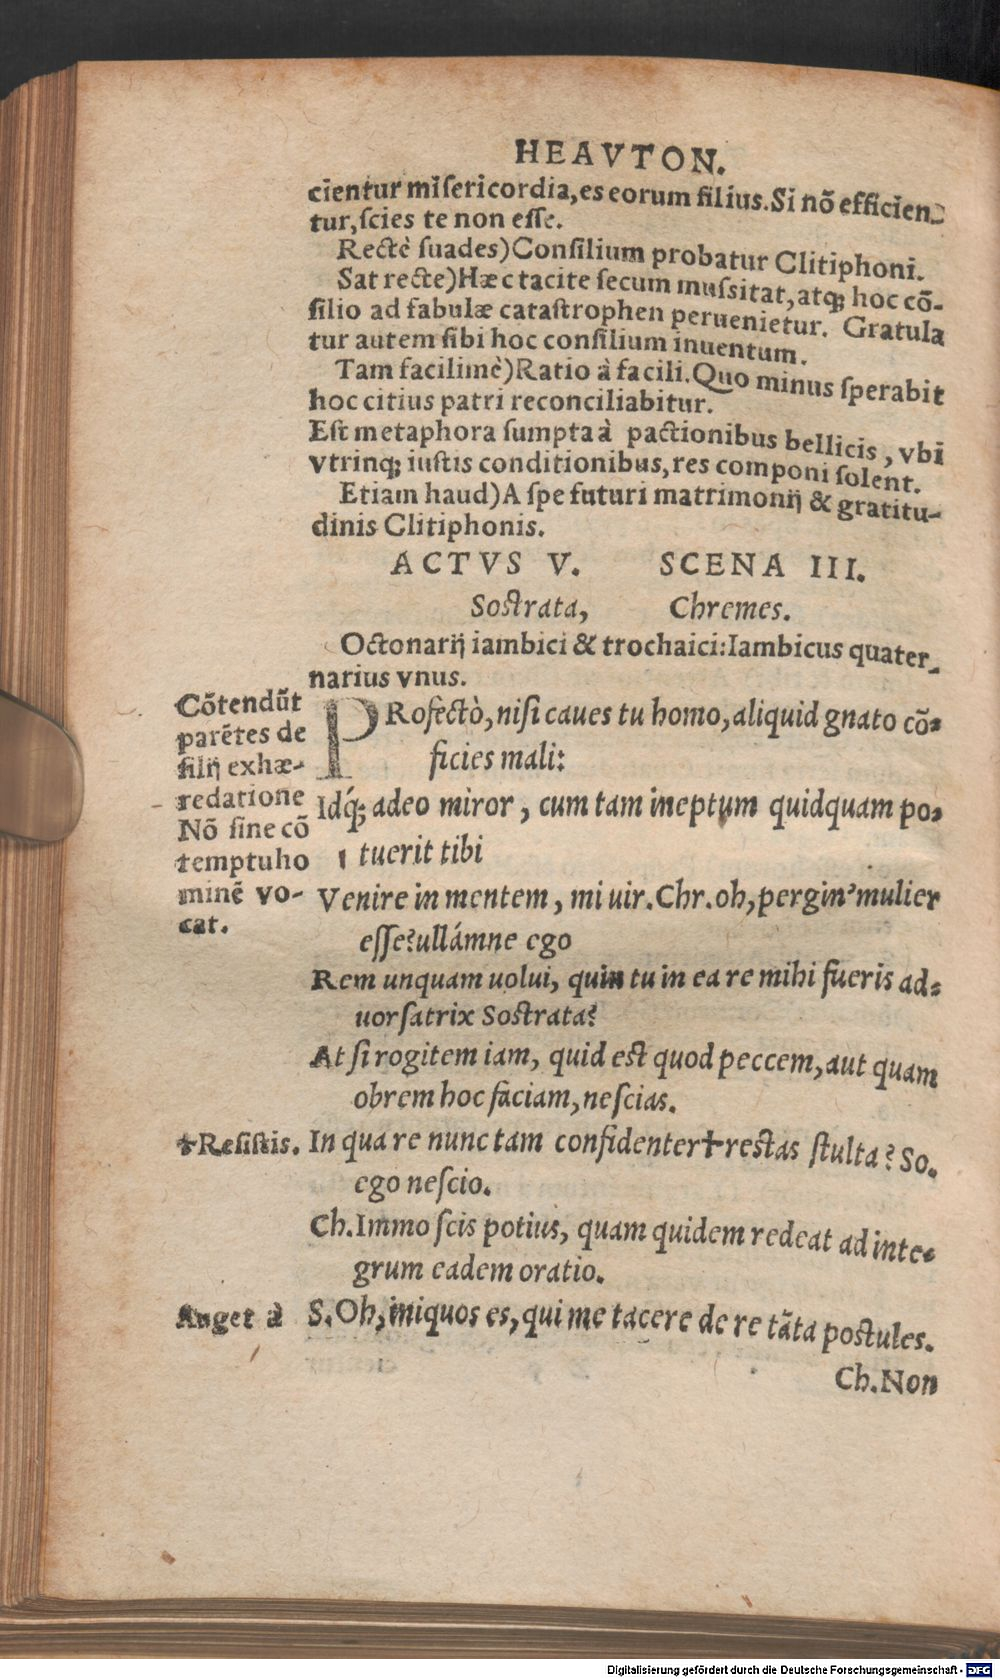 HEAVTON.
cientur misericordia, es eorum filius. Si nõ efficien-
tur, scies te non esse.
Rectè suades) Consilium probatur Clitiphoni.
Sat recte) Hæc tacite secum mussitat, atq; hoc cõ-
silio ad fabulæ catastrophen peruenietur. Gratula
tur autem sibi hoc consilium inuentum.
Tam facilimè) Ratio à facili. Quo minus sperabit
hoc citius patri reconciliabitur.
Est metaphora sumpta à pactionibus bellicis, vbi
vtrinq; iustis conditionibus, res componi solent.
Etiam haud) A spe futuri matrimonij & gratitu-
dinis Clitiphonis.
ACTVS V. SCENA III.
Sostrata, Chremes.
Octonarij iambici & trochaici: Iambicus quater-
narius vnus.
Cõtendũt
parẽtes de
filij exhæ-
redatione
Nõ sine cõ
temptu ho
minẽ vo-
cat.
PRofectò, nisi caues tu homo, aliquid gnato cõ-
ficies mali:
Idq́; adeo miror, cum tam ineptum quidquam po-
tuerit tibi
Venire in mentem, mi uir. Chr. oh, pergin' mulier
esse? ullámne ego
Rem unquam uolui, quin tu in ea re mihi fueris ad-
uorsatrix Sostrata?
At si rogitem iam, quid est quod peccem, aut quam
obrem hoc faciam, nescias.
✝Resistis.
In qua re nunc tam confidenter✝restas stulta? So.
ego nescio.
Ch. Immo scis potius, quam quidem redeat ad inte-
grum eadem oratio.
Auget à
S. Oh, iniquos es, qui me tacere de re tãta postules.
Ch. Non
Digitalisierung gefördert durch die Deutsche Forschungsgemeinschaft - DFG